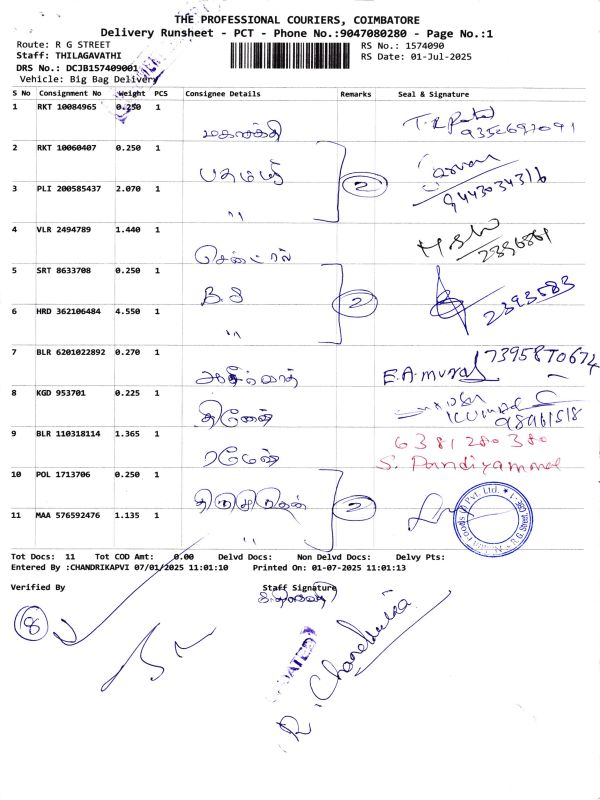 THE PROFESSIONAL COURIERS, COIMBATORE
Delivery Runsheet - PCT - Phone No.:9047080280 - Page No.:1
Route: R G STREET
Staff: THILAGAVATHI
DRS No.: DCJB157409001
Vehicle: Big Bag Delivery
RS No.: 1574090
RS Date: 01-Jul-2025
S No Consignment No Weight PCS Consignee Details Remarks Seal & Signature
1 RKT 10084965 0.250 1
மகாசக்தி
2 RKT 10060407 0.250 1
9443034316
2
3 PLI 200585437 2.070 1
"
4 VLR 2494789 1.440 1
சென்ட்ரல்
5 SRT 8633708 0.250 1
B.S 2 2393583
6 HRD 362106484 4.550 1
"
7 BLR 6201022892 0.270 1
E.A.Murali
8 KGD 953701 0.225 1
தினேஷ்
9 BLR 110318114 1.365 1
6381280380
ரமேஷ் S. Pandiyammal
10 POL 1713706 0.250 1
2
11 MAA 576592476 1.135 1
"
Tot Docs: 11 Tot COD Amt: 0.00 Delvd Docs: Non Delvd Docs: Delvy Pts:
Entered By :CHANDRIKAPVI 07/01/2025 11:01:10 Printed On: 01-07-2025 11:01:13
Verified By Staff Signature
8
R. Chandrika